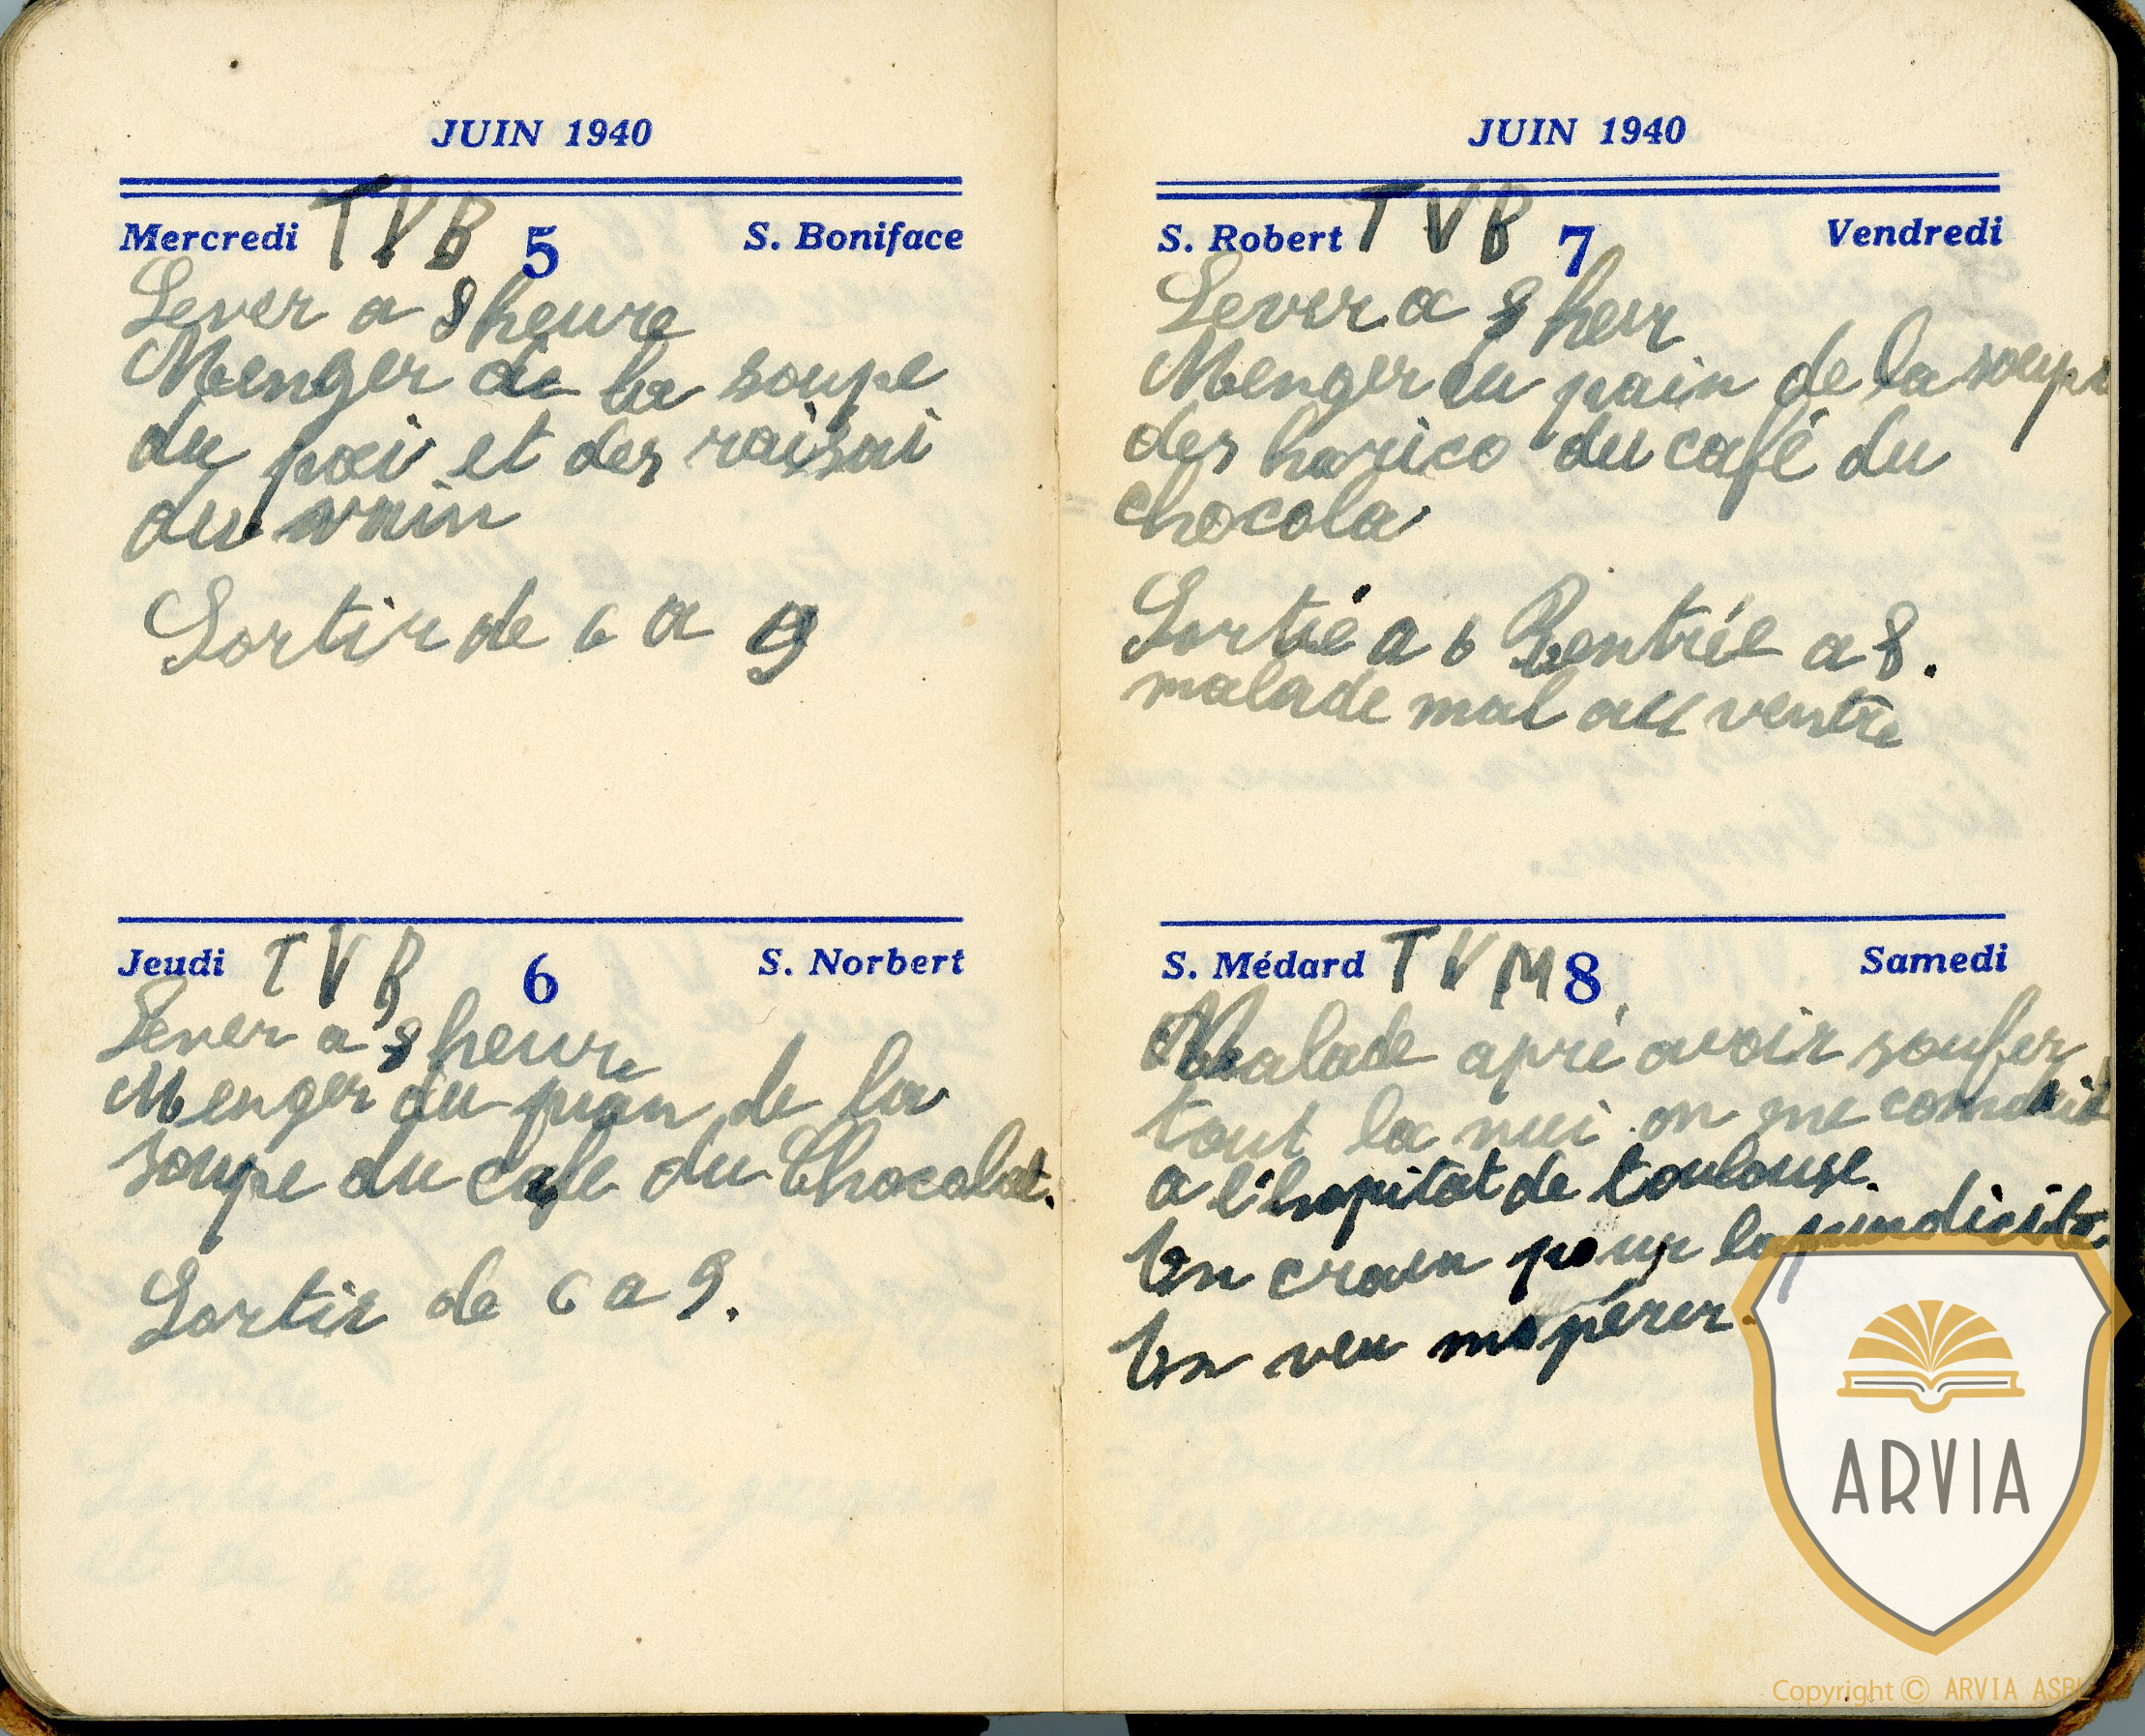 JUIN 1940
Mercredi TVB 5 S. Boniface
Lever a 8 heure
Menger de la soupe
du pai et des raisai
du vin
Sortir de 6 a 9
Jeudi TVB 6 S. Norbert
Lever a 8 heure
Menger du pian de la
soupe du cafe du Chocolat.
Sortir de 6 a 9.
JUIN 1940
S. Robert TVB 7 Vendredi
Lever a 8 heur
Menger du pain de la soupe
des harico du café du
chocola
Sortie a 6 Rentrée a 8.
malade mal au ventre
S. Médard TVM 8 Samedi
Malade apré avoir soufer
tout la nui on me conduit
a l'hopital de toulouse.
On crain pour
On veu mopérer.
ARVIA
Copyright © ARVIA ASBL